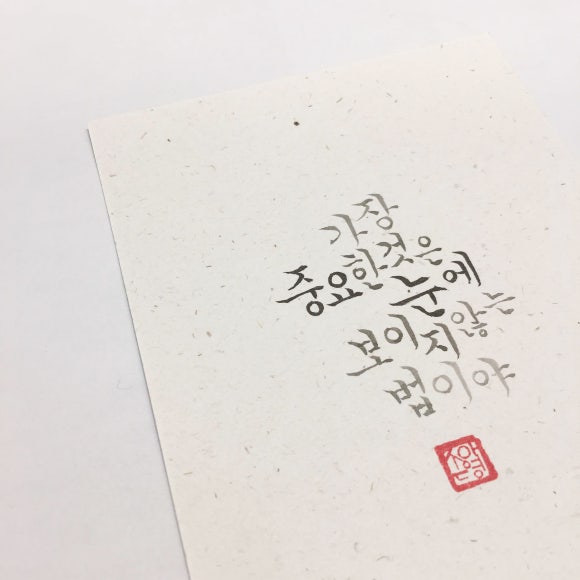 가장
중요한것은
눈에
보이지않는
법이야